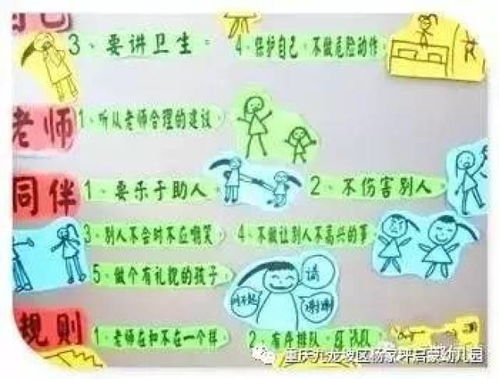 自己
3、要讲卫生。
4、保护自己，不做危险动作。
老师
1、听从老师合理的建议。
同伴
1、要乐于助人。
2、不伤害别人。
3、别人不会时不应嘲笑。
4、不做让别人不高兴的事。
5、做个有礼貌的孩子。
对不起
请
谢谢
规则
1、老师在和不在一个样
2、有序排队
重庆九龙坡区杨家坪启蒙幼儿园